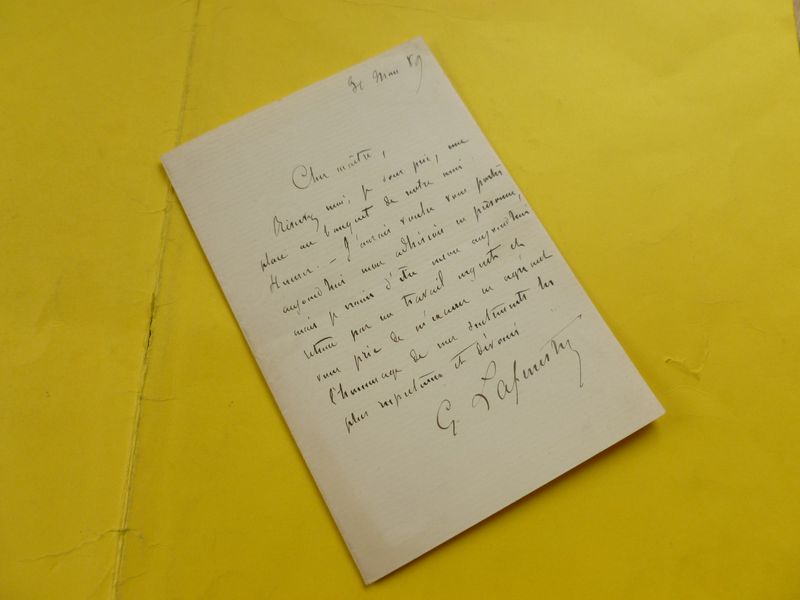 Mars 89
Cher maître,
Réservez moi, je vous prie, une
place au banquet de notre ami
J'aurais voulu vous porter
aujourd'hui mon adhésion en personne,
mais je viens d'être mon aujourd'hui
retenu par un travail urgent et
vous prie de m'excuser en agréant
l'hommage de mes sentiments les
plus respectueux et dévoués
G. Lafenestre